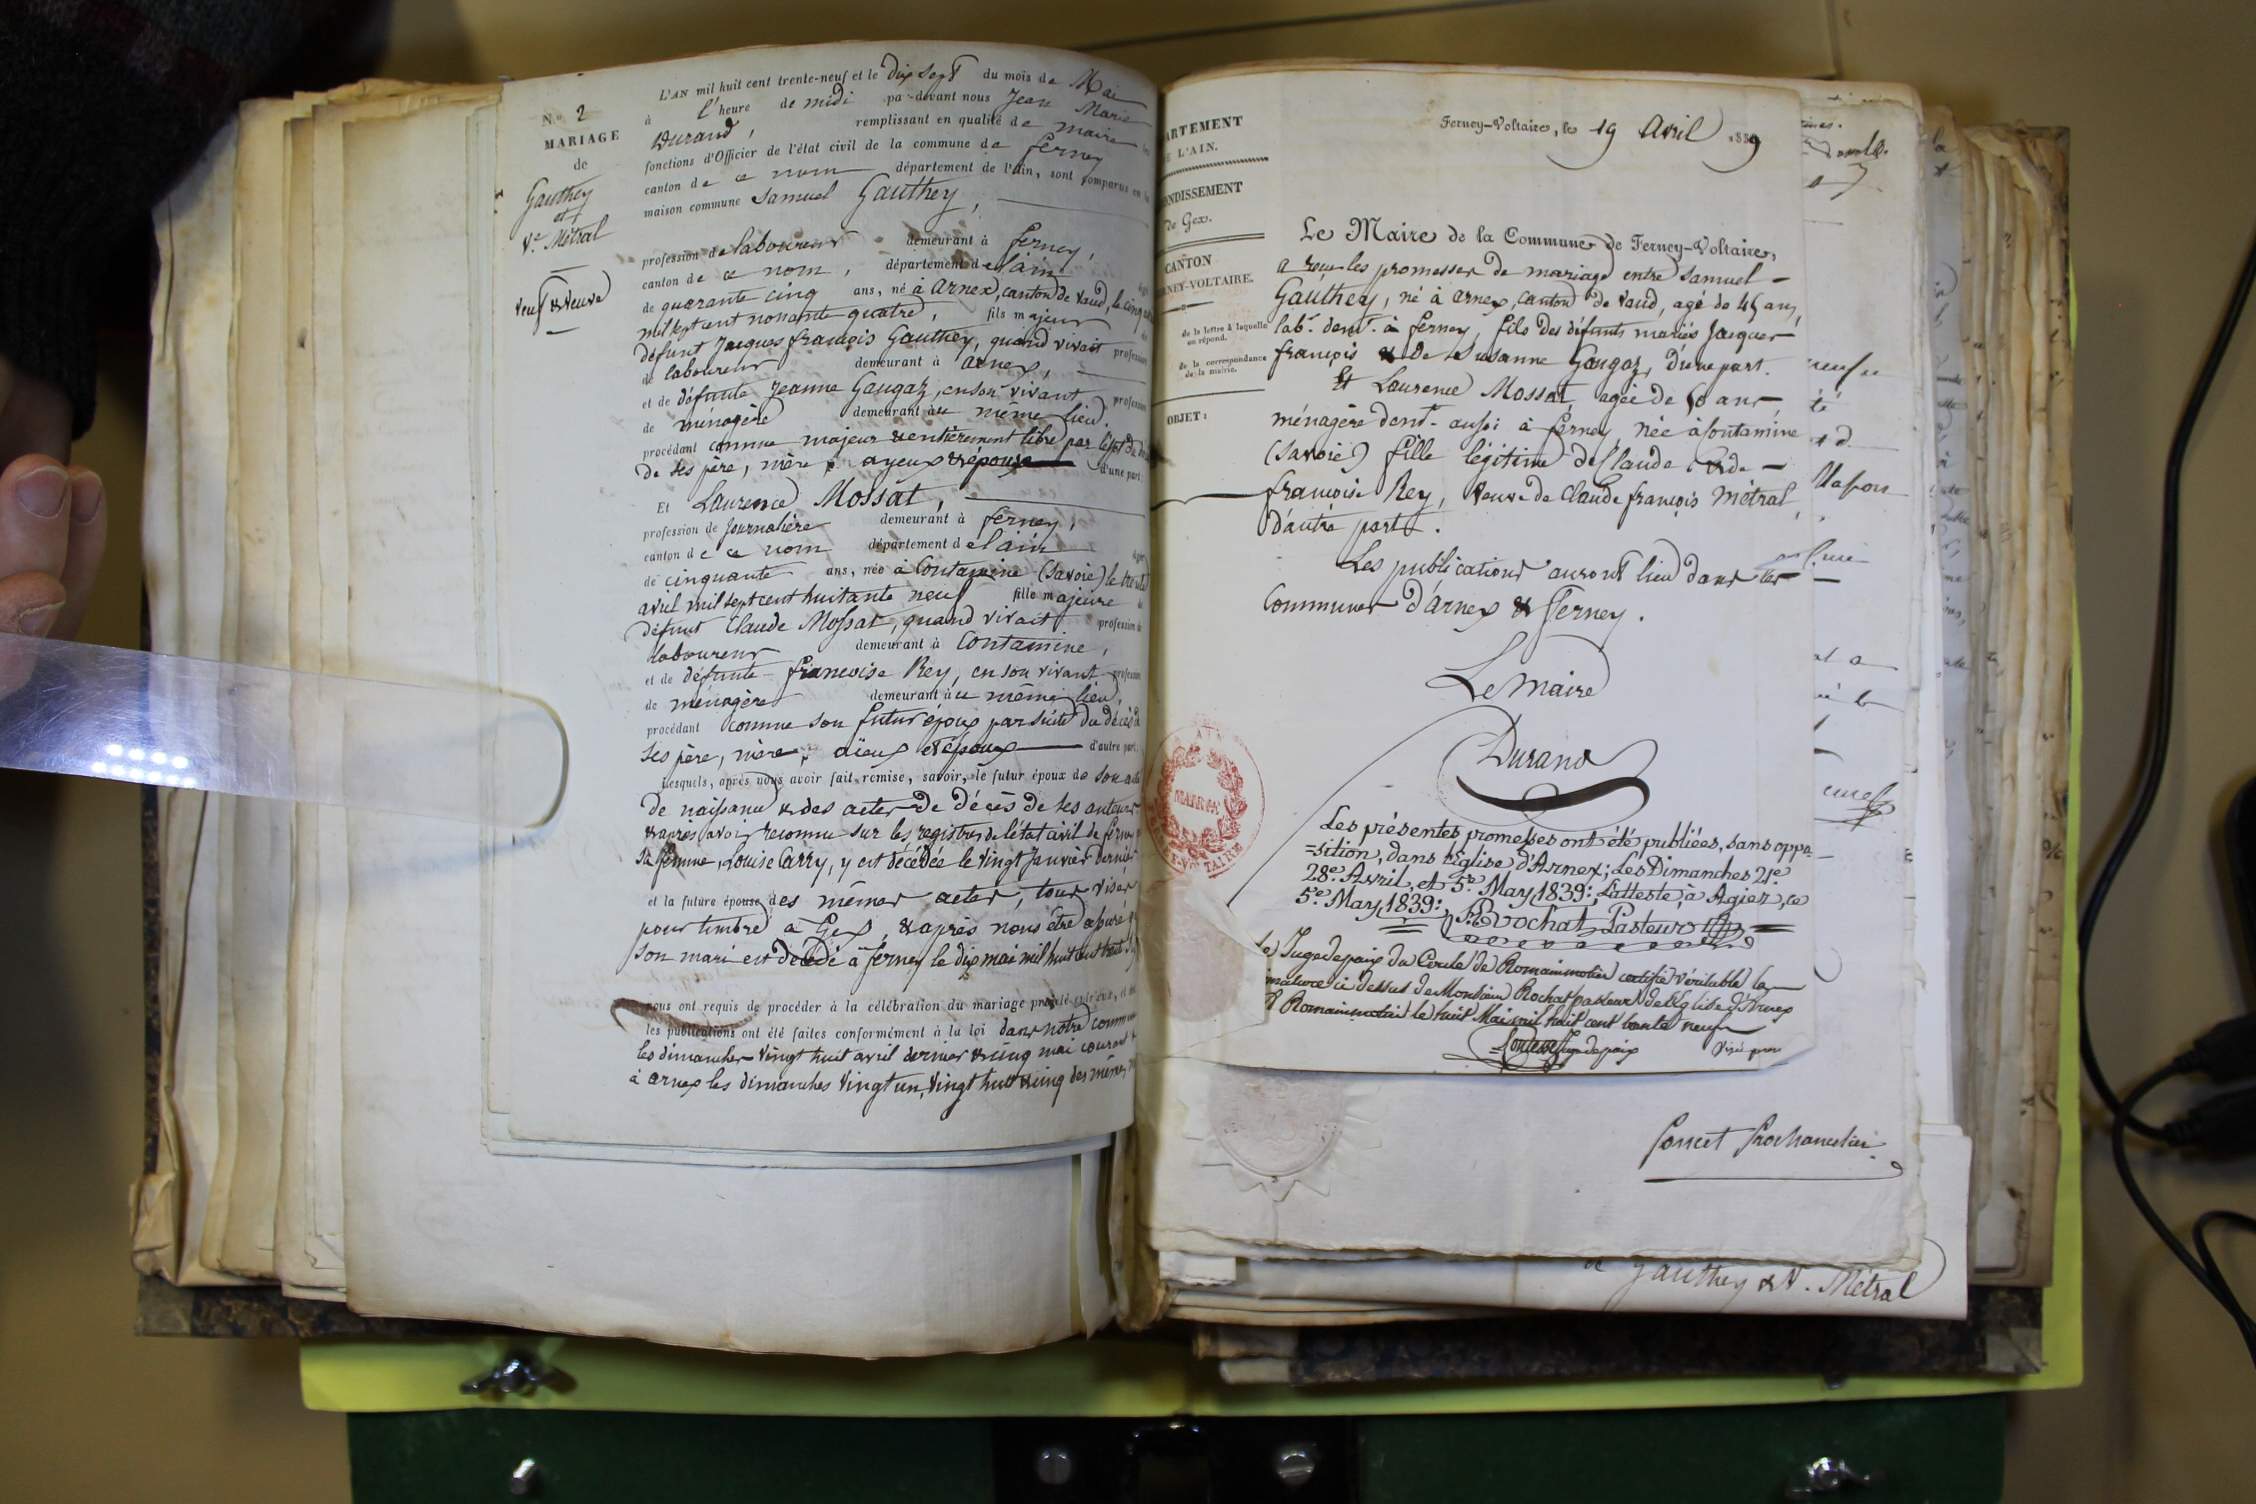 No 2
MARIAGE
de
Gauthey
et
Ve. Métral
veuf & veuve
L'AN mil huit cent trente-neuf et le dix sept du mois de Mai
à l'heure de midi par-devant nous Jean Marie
Durand, remplissant en qualité de maire les
fonctions d'Officier de l'état civil de la commune de ferney
canton de ce nom département de l'Ain, sont comparus en la
maison commune Samuel Gauthey,
profession de laboureur demeurant à ferney,
canton de ce nom, département de l'ain
de quarante cinq ans, né à Arnex, canton de Vaud, le cinq
mil sept cent nonante quatre, fils majeur
défunt Jacques françois Gauthey, quand vivait profession
de laboureur demeurant à arnex,
et de défunte Jeanne Gaugaz, en son vivant profession
de ménagère demeurant au même lieu.
procédant comme majeur & entièrement libre par l'effet du
de ses père, mère, ayeux & épouse d'une part
Et Laurence Mossat,
profession de Journalière demeurant à ferney,
canton de ce nom département de l'ain
de cinquante ans, née à Contamine (Savoie) le trente
avril mil sept cent huitante neuf fille majeure
défunt Claude Mossat, quand vivait profession de
laboureur demeurant à Contamine,
et de défunte françoise Rey, en son vivant profession
de ménagère demeurant au même lieu,
procédant comme son futur époux par suite du décès de
ses père, mère, aïeux et époux d'autre part
Lesquels, après nous avoir fait remise, savoir, le futur époux de son acte
de naissance & des actes de décès de ses auteurs
& après avoir reconnu sur les registres de l'état civil de ferney
sa femme, Louise Carry, y est décédée le vingt Janvier dernier
et la future épouse des mêmes actes, tous visés
pour timbre à Gex, & après nous être assuré
son mari est décédé à ferney le dix mai mil huit cent trente
nous ont requis de procéder à la célébration du mariage projeté entr'eux, et dont
les publications ont été faites conformément à la loi dans notre commune
les dimanches vingt huit avril dernier & cinq mai courant
à arnex les dimanches vingt un, vingt huit & cinq des mêmes
ARTEMENT
E L'AIN.
ONDISSEMENT
de Gex.
CANTON
RNEY-VOLTAIRE.
de la lettre à laquelle
on répond.
de la correspondance
de la mairie.
OBJET:
Ferney-Voltaire, le 19 Avril 1839
Le Maire de la Commune de Ferney-Voltaire,
a reçu les promesses de mariage entre Samuel
Gauthey, né à arnex, canton de Vaud, agé de 45 ans,
lab. demt. à ferney, fils des défunts mariés Jacques
françois & de Susanne Gaugaz, d'une part.
Et Laurence Mossat, agée de 50 ans,
ménagère demt. aussi à ferney, née à Contamine
(Savoie) fille légitime de Claude & de
françoise Rey, veuve de Claude françois Métral,
d'autre part.
Les publications auront lieu dans les
Communes d'Arnex & Ferney.
Le Maire
Durand
MAIRIE
Les présentes promesses ont été publiées, sans oppo-
=sition, dans l'Eglise d'Arnex; les Dimanches 21e.
28e. Avril, et 5e. May 1839: l'atteste, à Agiez, ce
5e. May, 1839: Rochat Pasteur
Le Juge de paix du Cercle de Romainmotier certifie véritable la
signature ci dessus de Monsieur Rochat pasteur de l'Eglise d'Arnex
Romainmotier le huit Mai mil huit cent trente neuf
Juge de paix
Visé pour
Poncet Prochancelier
de Gauthey & V. Métral